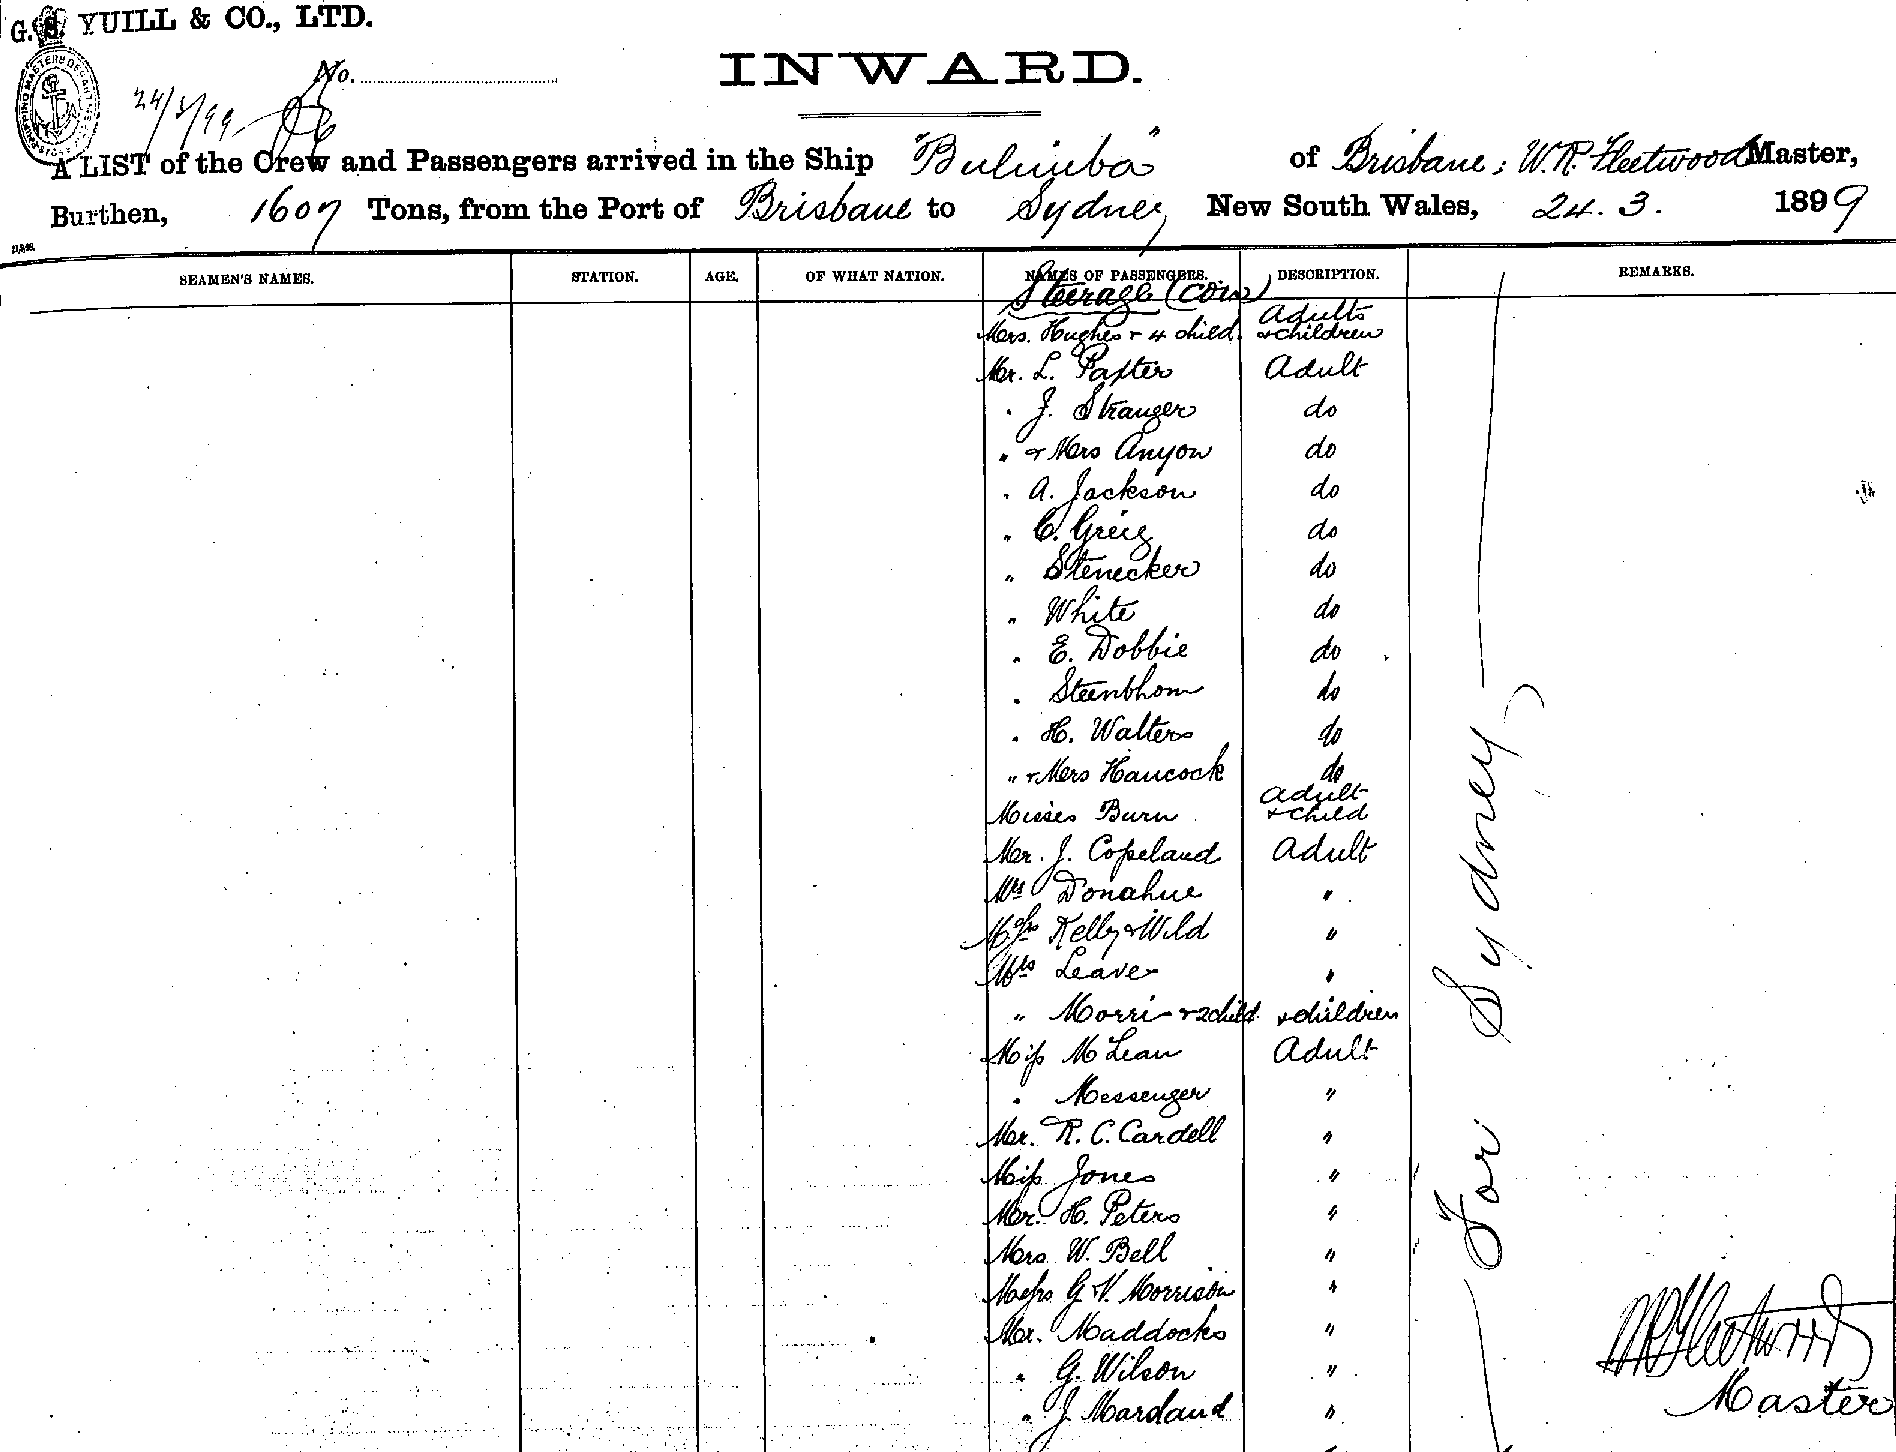 G. S. YUILL & CO., LTD.
No.
INWARD.
24/3/99
A LIST of the Crew and Passengers arrived in the Ship "Bulimba" of Brisbane; W.R. Fleetwood Master,
Burthen, 1607 Tons, from the Port of Brisbane to Sydney New South Wales, 24. 3. 1899
SEAMEN'S NAMES. STATION. AGE. OF WHAT NATION. NAMES OF PASSENGERS. DESCRIPTION. REMARKS.
Steerage (con)
Mrs. Hughes & 4 child. Adults & children
Mr. L. Paxter Adult
. J. Stranger do
" & Mrs Anyon do
. A. Jackson do
" C. Greig do
" Stenecker do
" White do
" E. Dobbie do
. Steenbhom do
. H. Walters do
" & Mrs Hancock do
Misses Burn Adult & child
Mr. J. Copeland Adult
Mrs Donahue "
Messrs Kelly & Wild "
Mrs Leaver "
" Morri & 2 child & children
Miss McLean Adult
. Messenger "
Mr. R. C. Cardell "
Miss Jones "
Mr. H. Peters "
Mrs W. Bell "
Messrs G & V. Morrison "
Mr. Maddocks "
. G. Wilson "
" J. Mardaud "
For Sydney
WR Fleetwood
Master